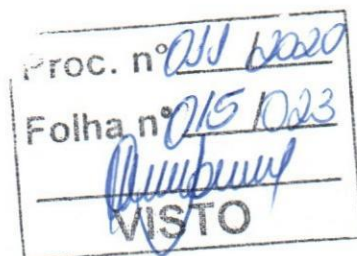 Proc. nº 011 / 2020
Folha nº 015 / 023
VISTO